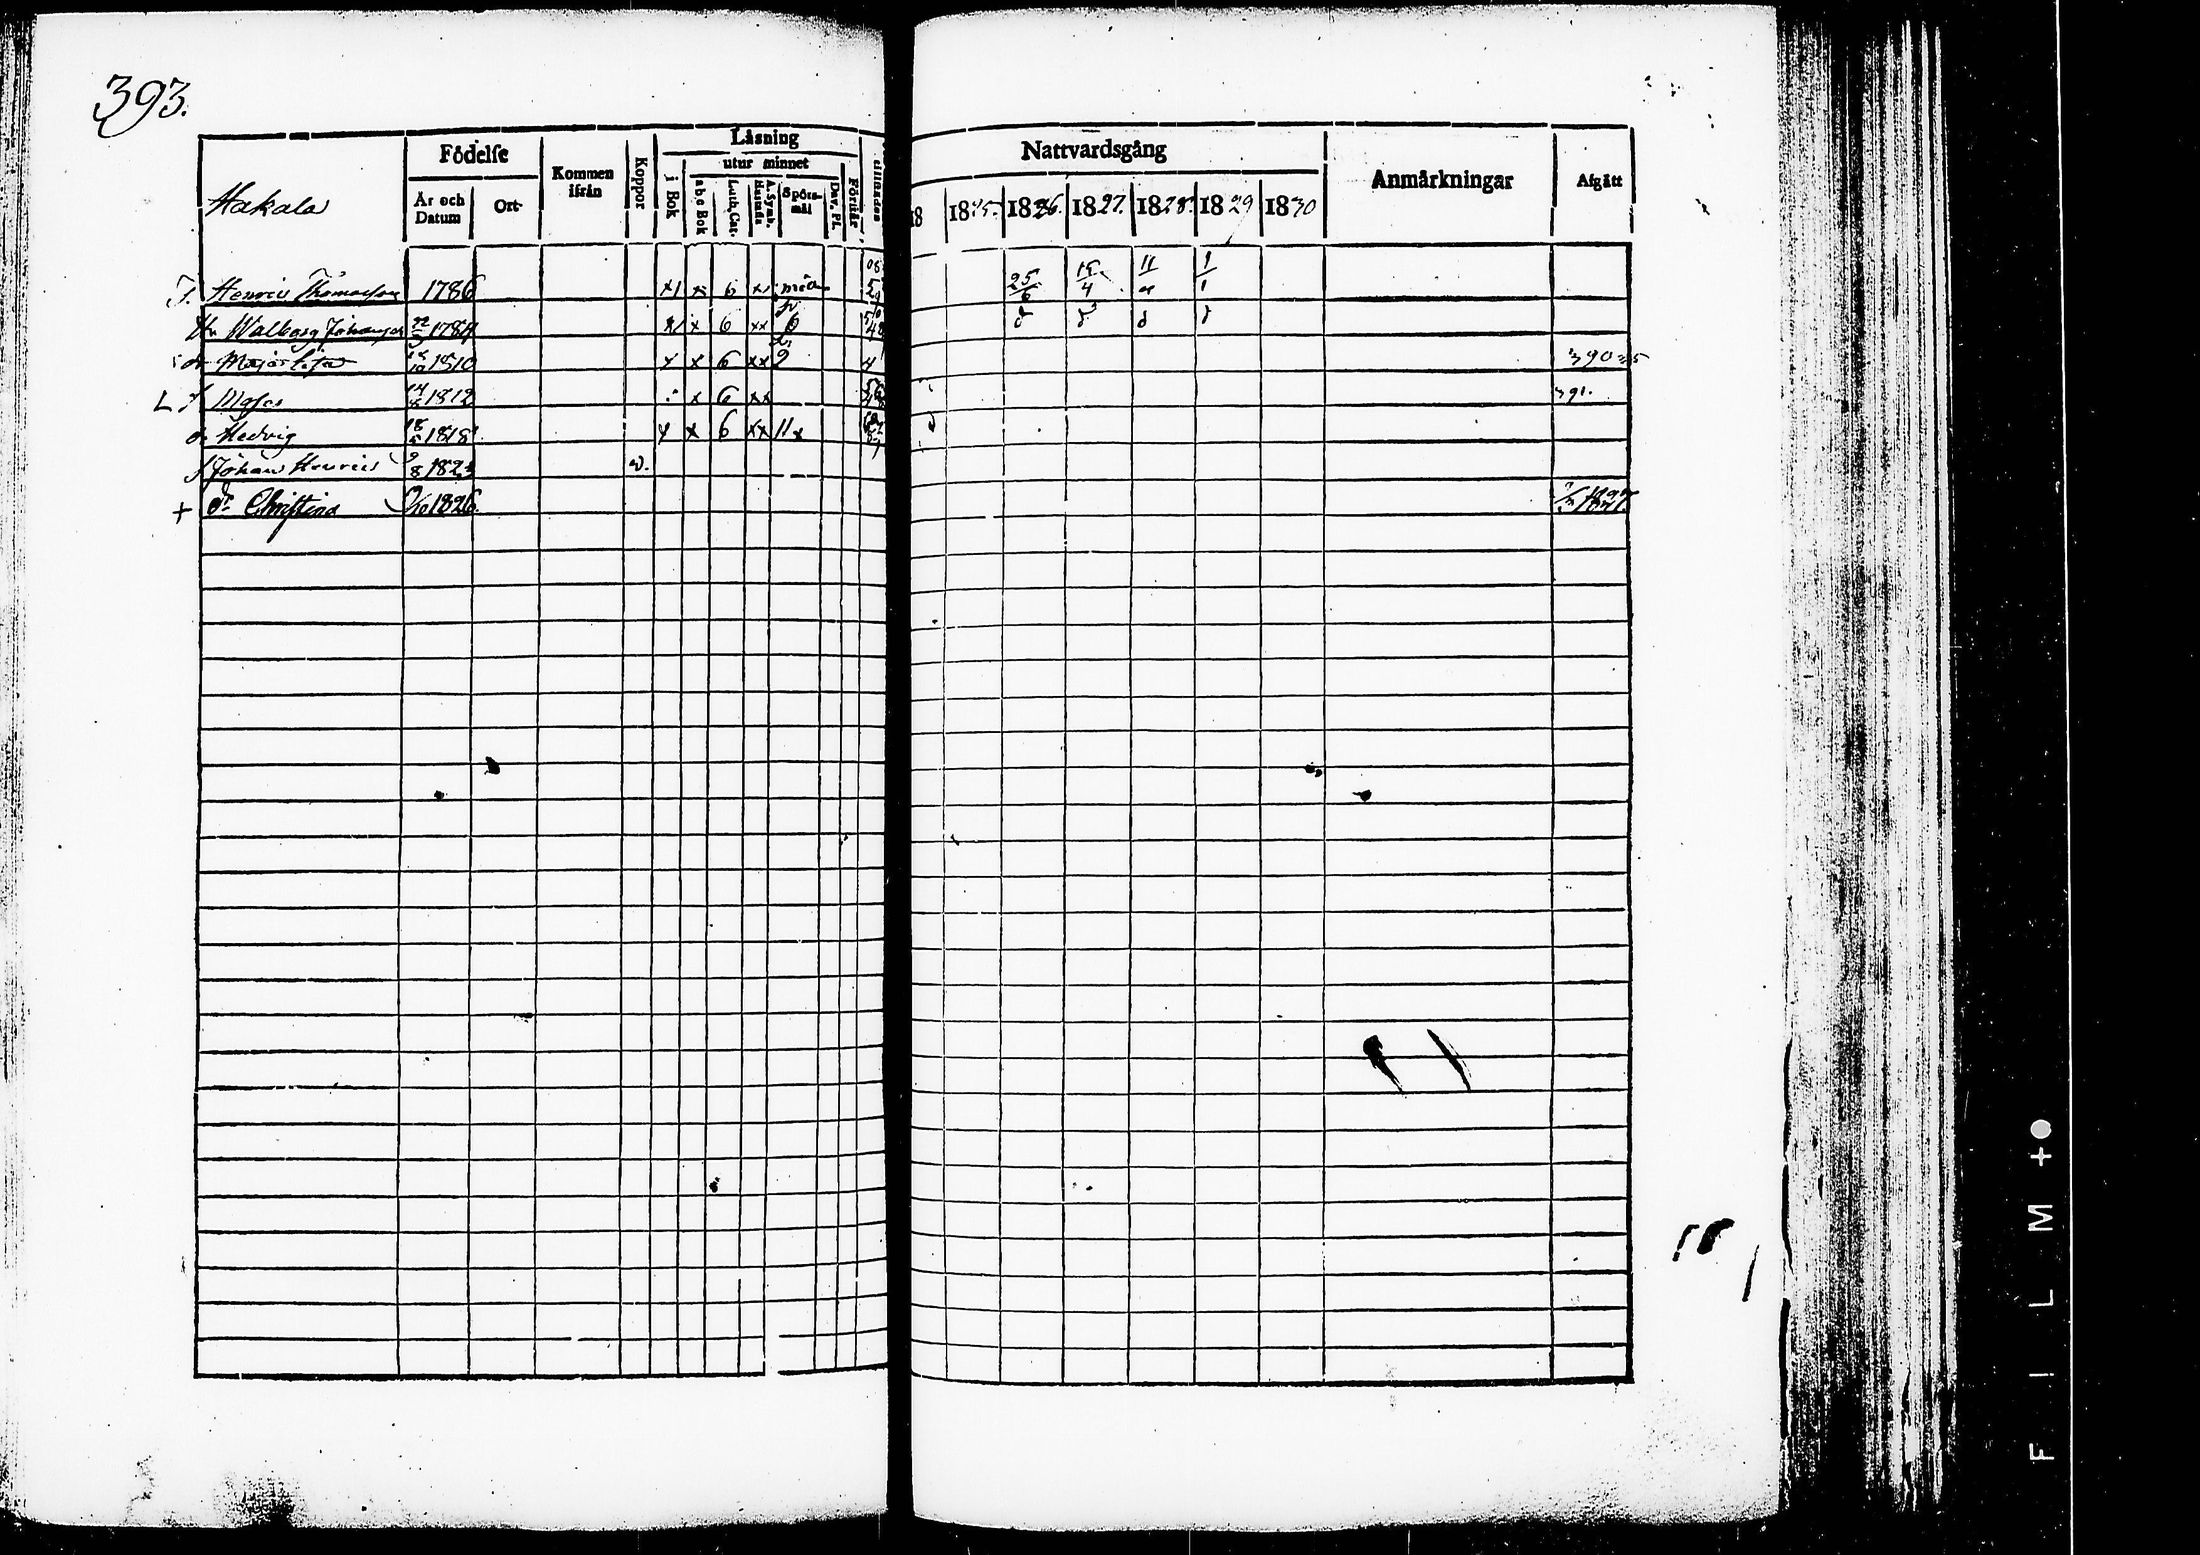 393.
Hakala
Födelse
År och Datum
Ort
Kommen ifrån
Koppor
Läsning
i Bok
utur minnet
a,b,c Bok
Luth. Cat.
A. Symb. Hustafla
Spörsmål
Dav. Pl.
Förstår
Nattvardsgång
18 1825. 1826. 1827. 1828. 1829 1830
Anmärkningar
Afgått
T. Henric Thomasson 1786 x x 6 x 25/6 15/4 11 1/1
Hu Walborg Johansdr 22 1784 x x 6 xx 6 d d d d
dr Maja Lisa 15/10 1810 x x 6 xx 2 4 390
L S Moses 14 1812 x 6 xx 391.
dr Hedvig 18 1818 x x 6 xx 11 x d
S Johan Henric 9/8 1823 v.
+ dr Christina 9/10 1826. 1827.
FILM